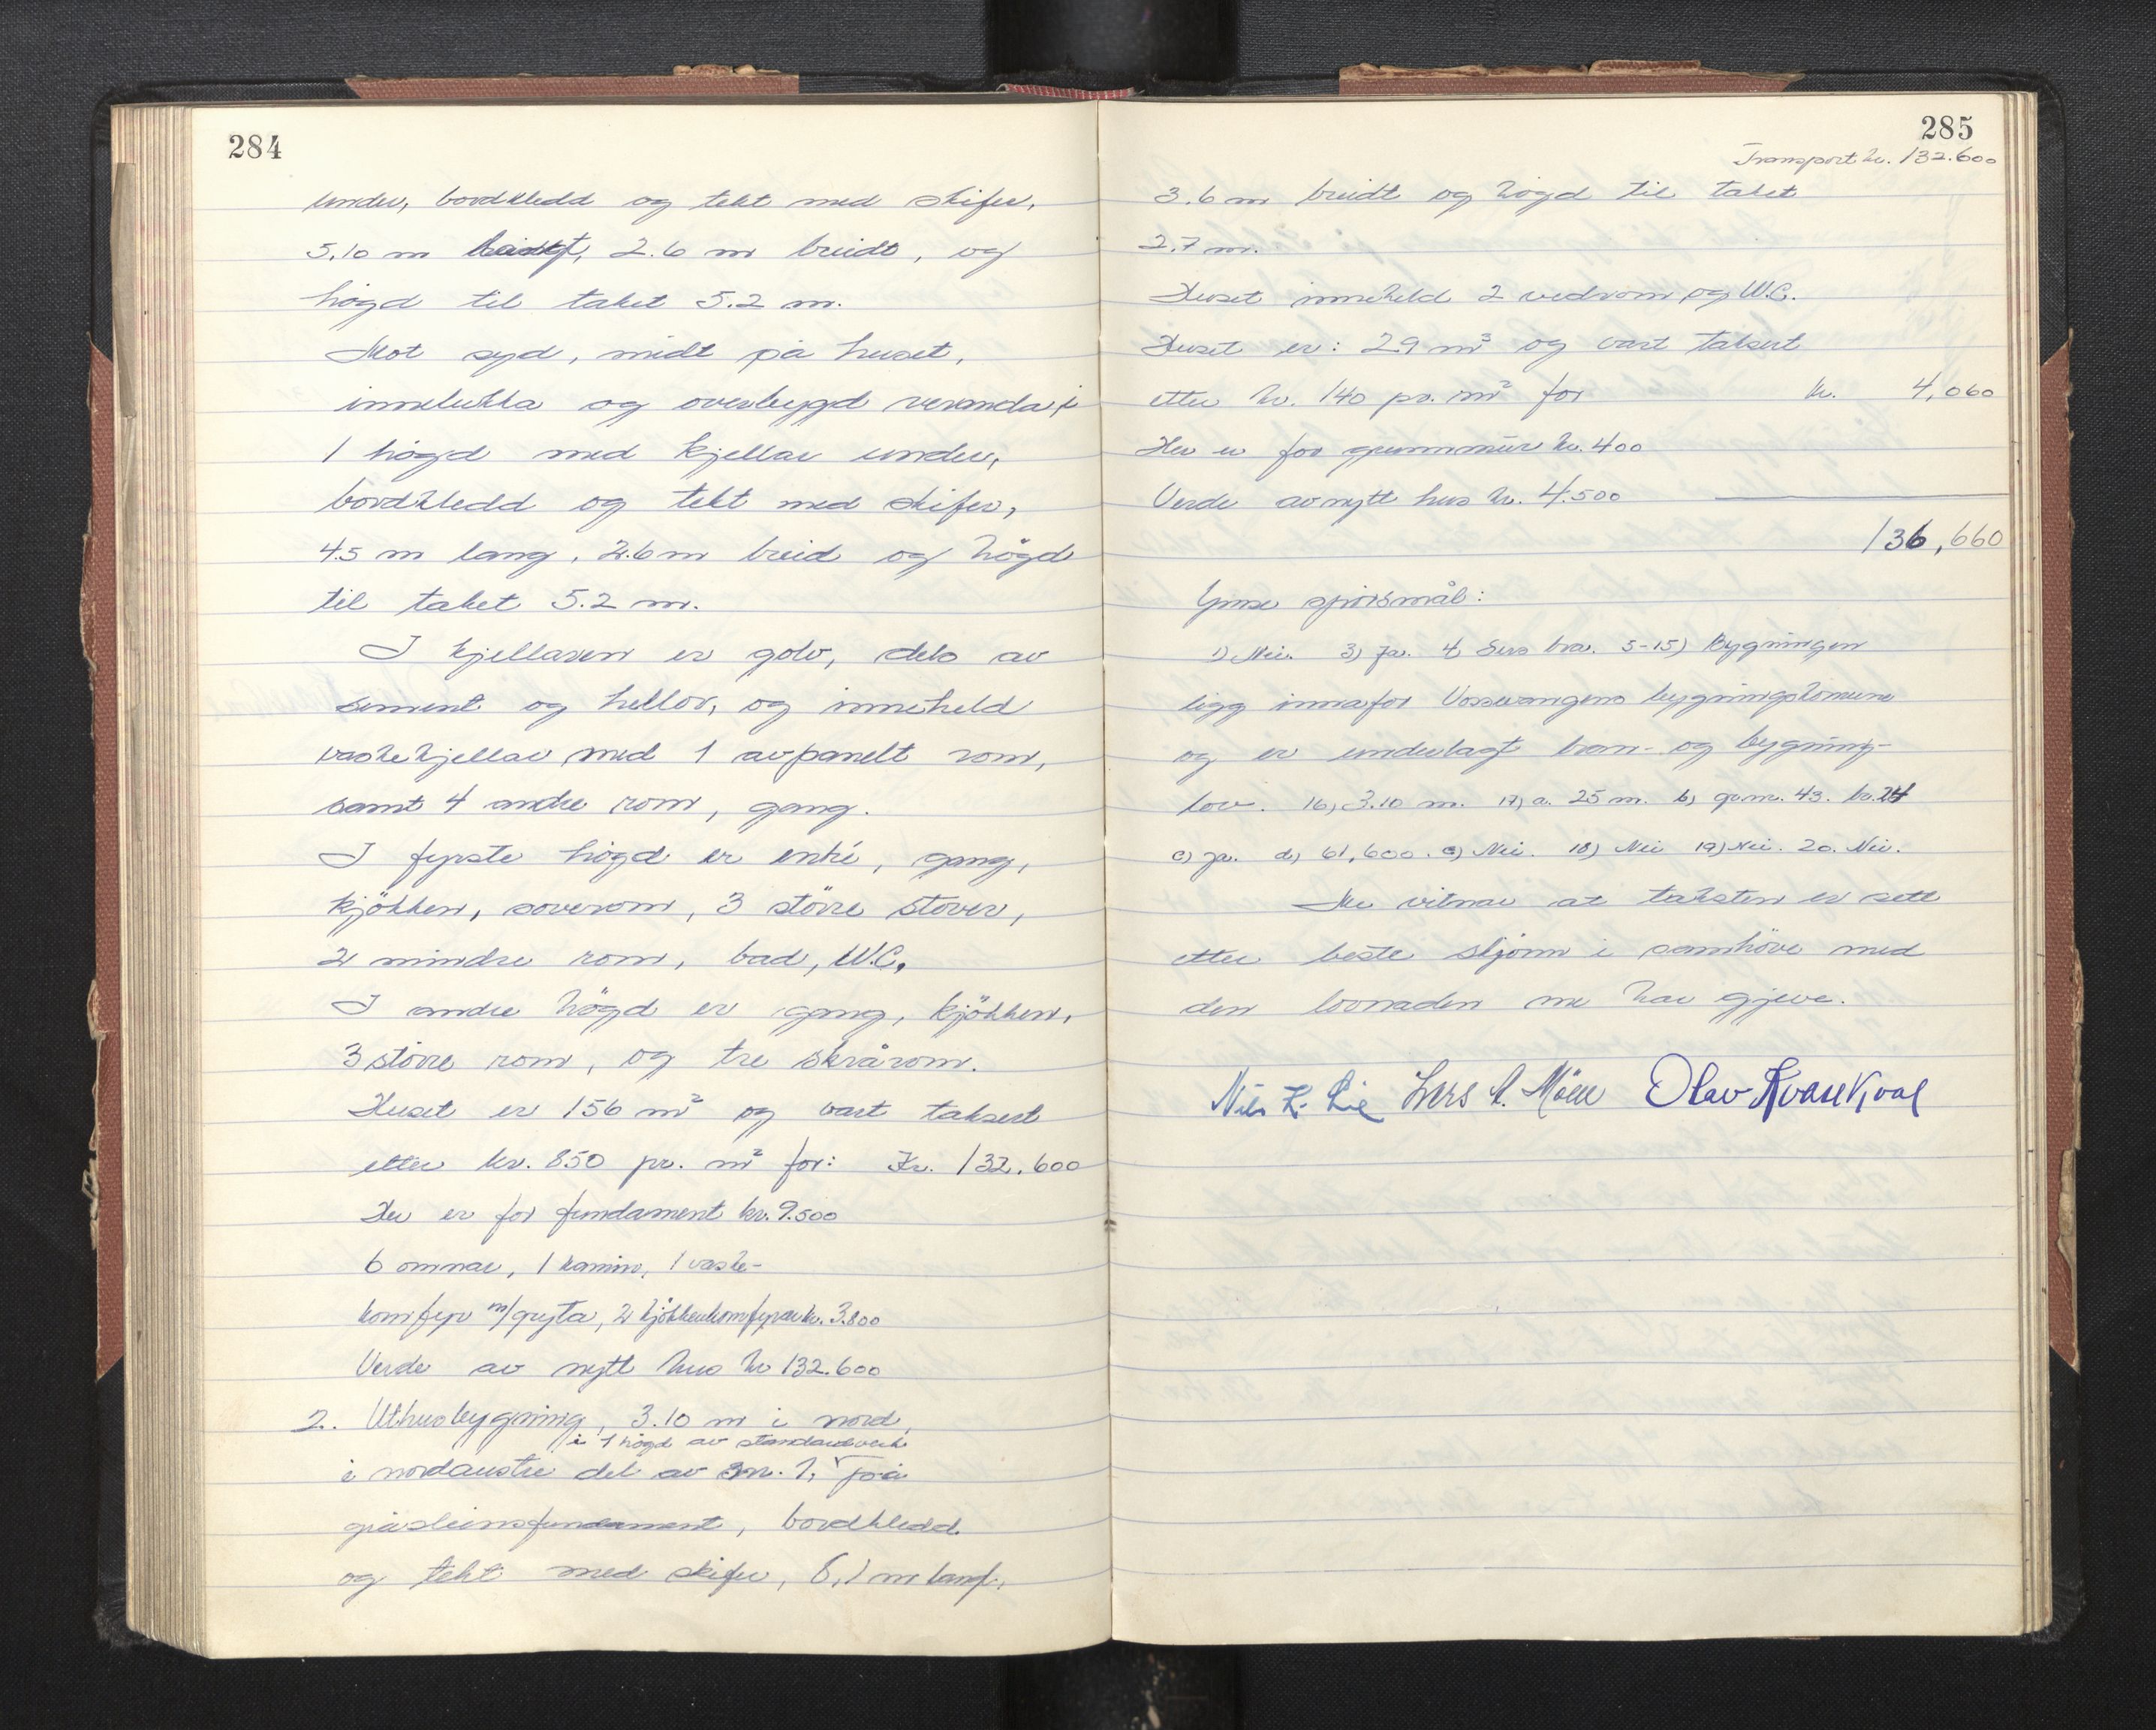 284
under, bordkledd og tekt med skifer,
5.10 m langt, 2.6 m breidt, og
högd til taket 5.2 m.
Mot syd, midt på huset,
innelukka og overbygd veranda i
1 högd med kjellar under,
bordkledd og tekt med skifer,
4.5 m lang, 2.6 m breid og högd
til taket 5.2 m.
I kjellaren er golv, dels av
sement og hellor, og inneheld
vaskekjellar med 1 avpanelt rom,
samt 4 andre rom, gang.
I fyrste högd er entré, gang,
kjökken, soverom, 3 större stover,
2 mindre rom, bad, W.C.
I andre högd er gang, kjökken,
3 större rom, og tre skrårom.
Huset er 156 m² og vart taksert
etter kr. 850 pr. m² for: Kr. 132.600
Her er for fundament kr. 9.500
6 omnar, 1 kamin, 1 vaske-
komfyr m/gryta, 2 kjökkenkomfyrar kr. 3.800
Verde av nytt hus kr 132.600
2. Uthusbygning, 3.10 m i nord,
i 1 högd av standardverk
i nordaustre del av nr. 1, på
gråsteinsfundament, bordkledd
og tekt med skifer, 8,1 m langt,
285
Transport kr. 132.600
3.6 m breidt og högd til taket
2.7 m.
Huset inneheld 2 vedrom og W.C.
Huset er: 29 m³ og vart taksert
etter kr. 140 pr. m² for kr. 4,060
Her er for grunnmur kr. 400
Verde av nytt hus kr. 4.500
136,660
Ymse spörsmål:
1) Nei. 3) Ja. 4) Sers bra. 5-15) Bygningen
ligg innafor Vossevangens bygningskomune
og er underlagt bran- og bygning-
lov. 16) 3.10 m. 17) a. 25 m. b) g.nr. 43. br. 24
c) Ja. d) 61,600. e) Nei. 18) Nei 19) Nei. 20. Nei.
Me vitnar at taksten er sett
etter beste skjönn i samhöve med
den lovnaden me har gjeve.
Nils K. Lie Lars L. Möen Olav Kvarekval